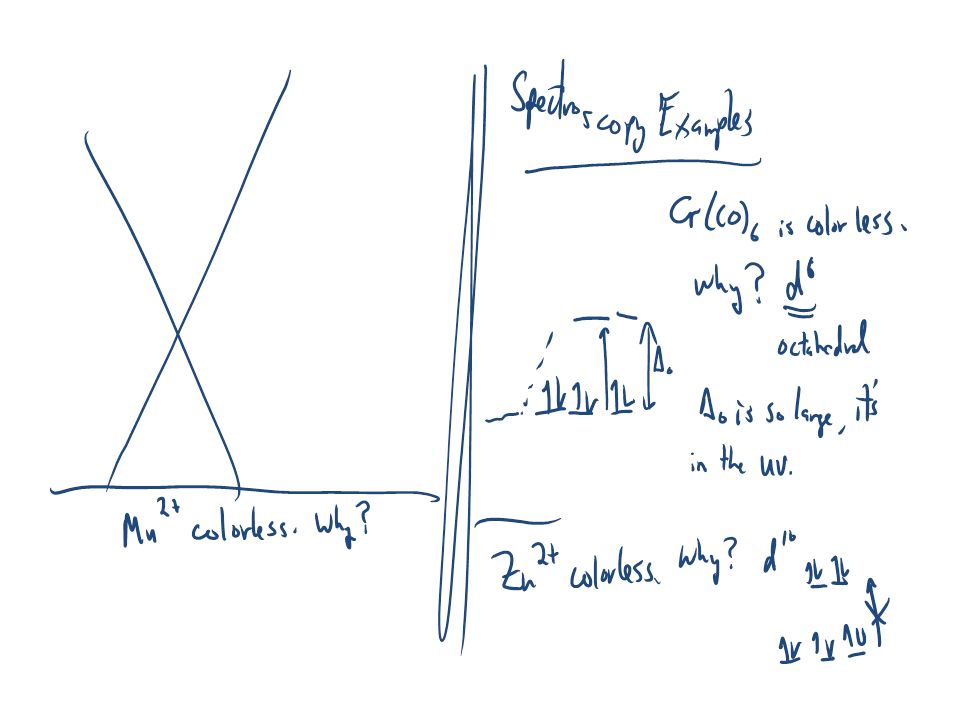 Mn²⁺ colorless. Why?
Spectroscopy Examples
Cr(CO)₆ is colorless.
Why? d⁶
octahedral
Δₒ
Δₒ is so large, it's
in the UV.
Zn²⁺ colorless. Why? d¹⁰